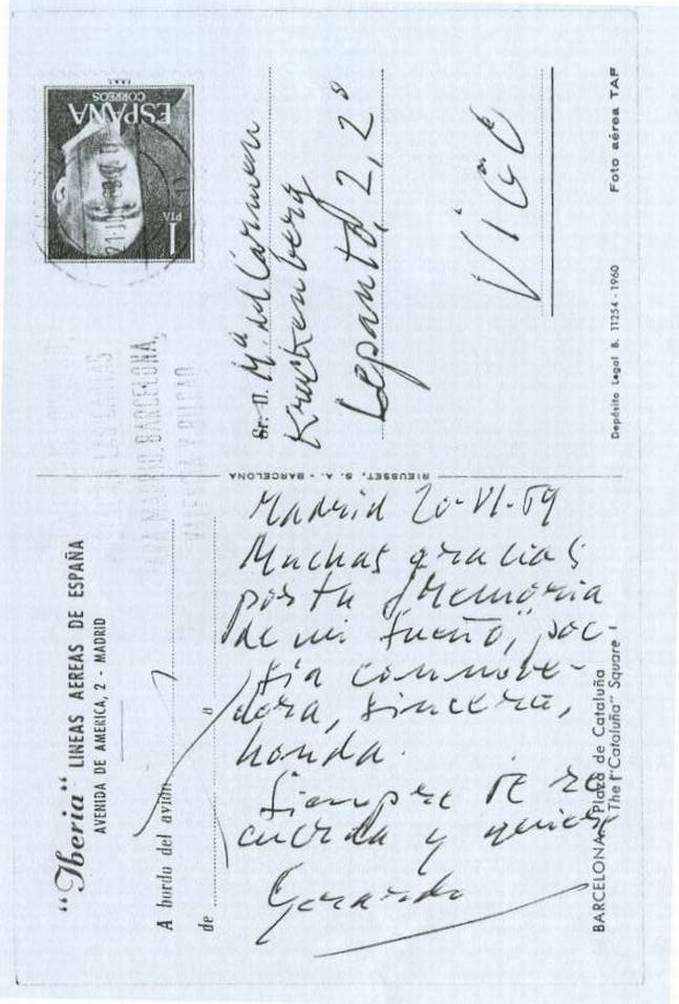 "Iberia" LINEAS AEREAS DE ESPAÑA
AVENIDA DE AMERICA, 2 - MADRID
A bordo del avión
de a
Madrid 20-VI-69
Muchas gracias
por tu "Memoria
de mi sueño", poe-
sía conmove-
dora, sincera,
honda.
Siempre te re
cuerda y quiere
Gerardo
BARCELONA. Plaza de Cataluña
The "Cataluña" Square
RIEUSSET, S. A. - BARCELONA
ESPAÑA
CORREOS
1 PTA
MADRID, BARCELONA,
VALENCIA Y BILBAO
Sr. D. Mª del Carmen
Kruckenberg
Lepanto, 2, 2º
VIGO
Depósito Legal B. 11254 - 1960
Foto aérea TAF